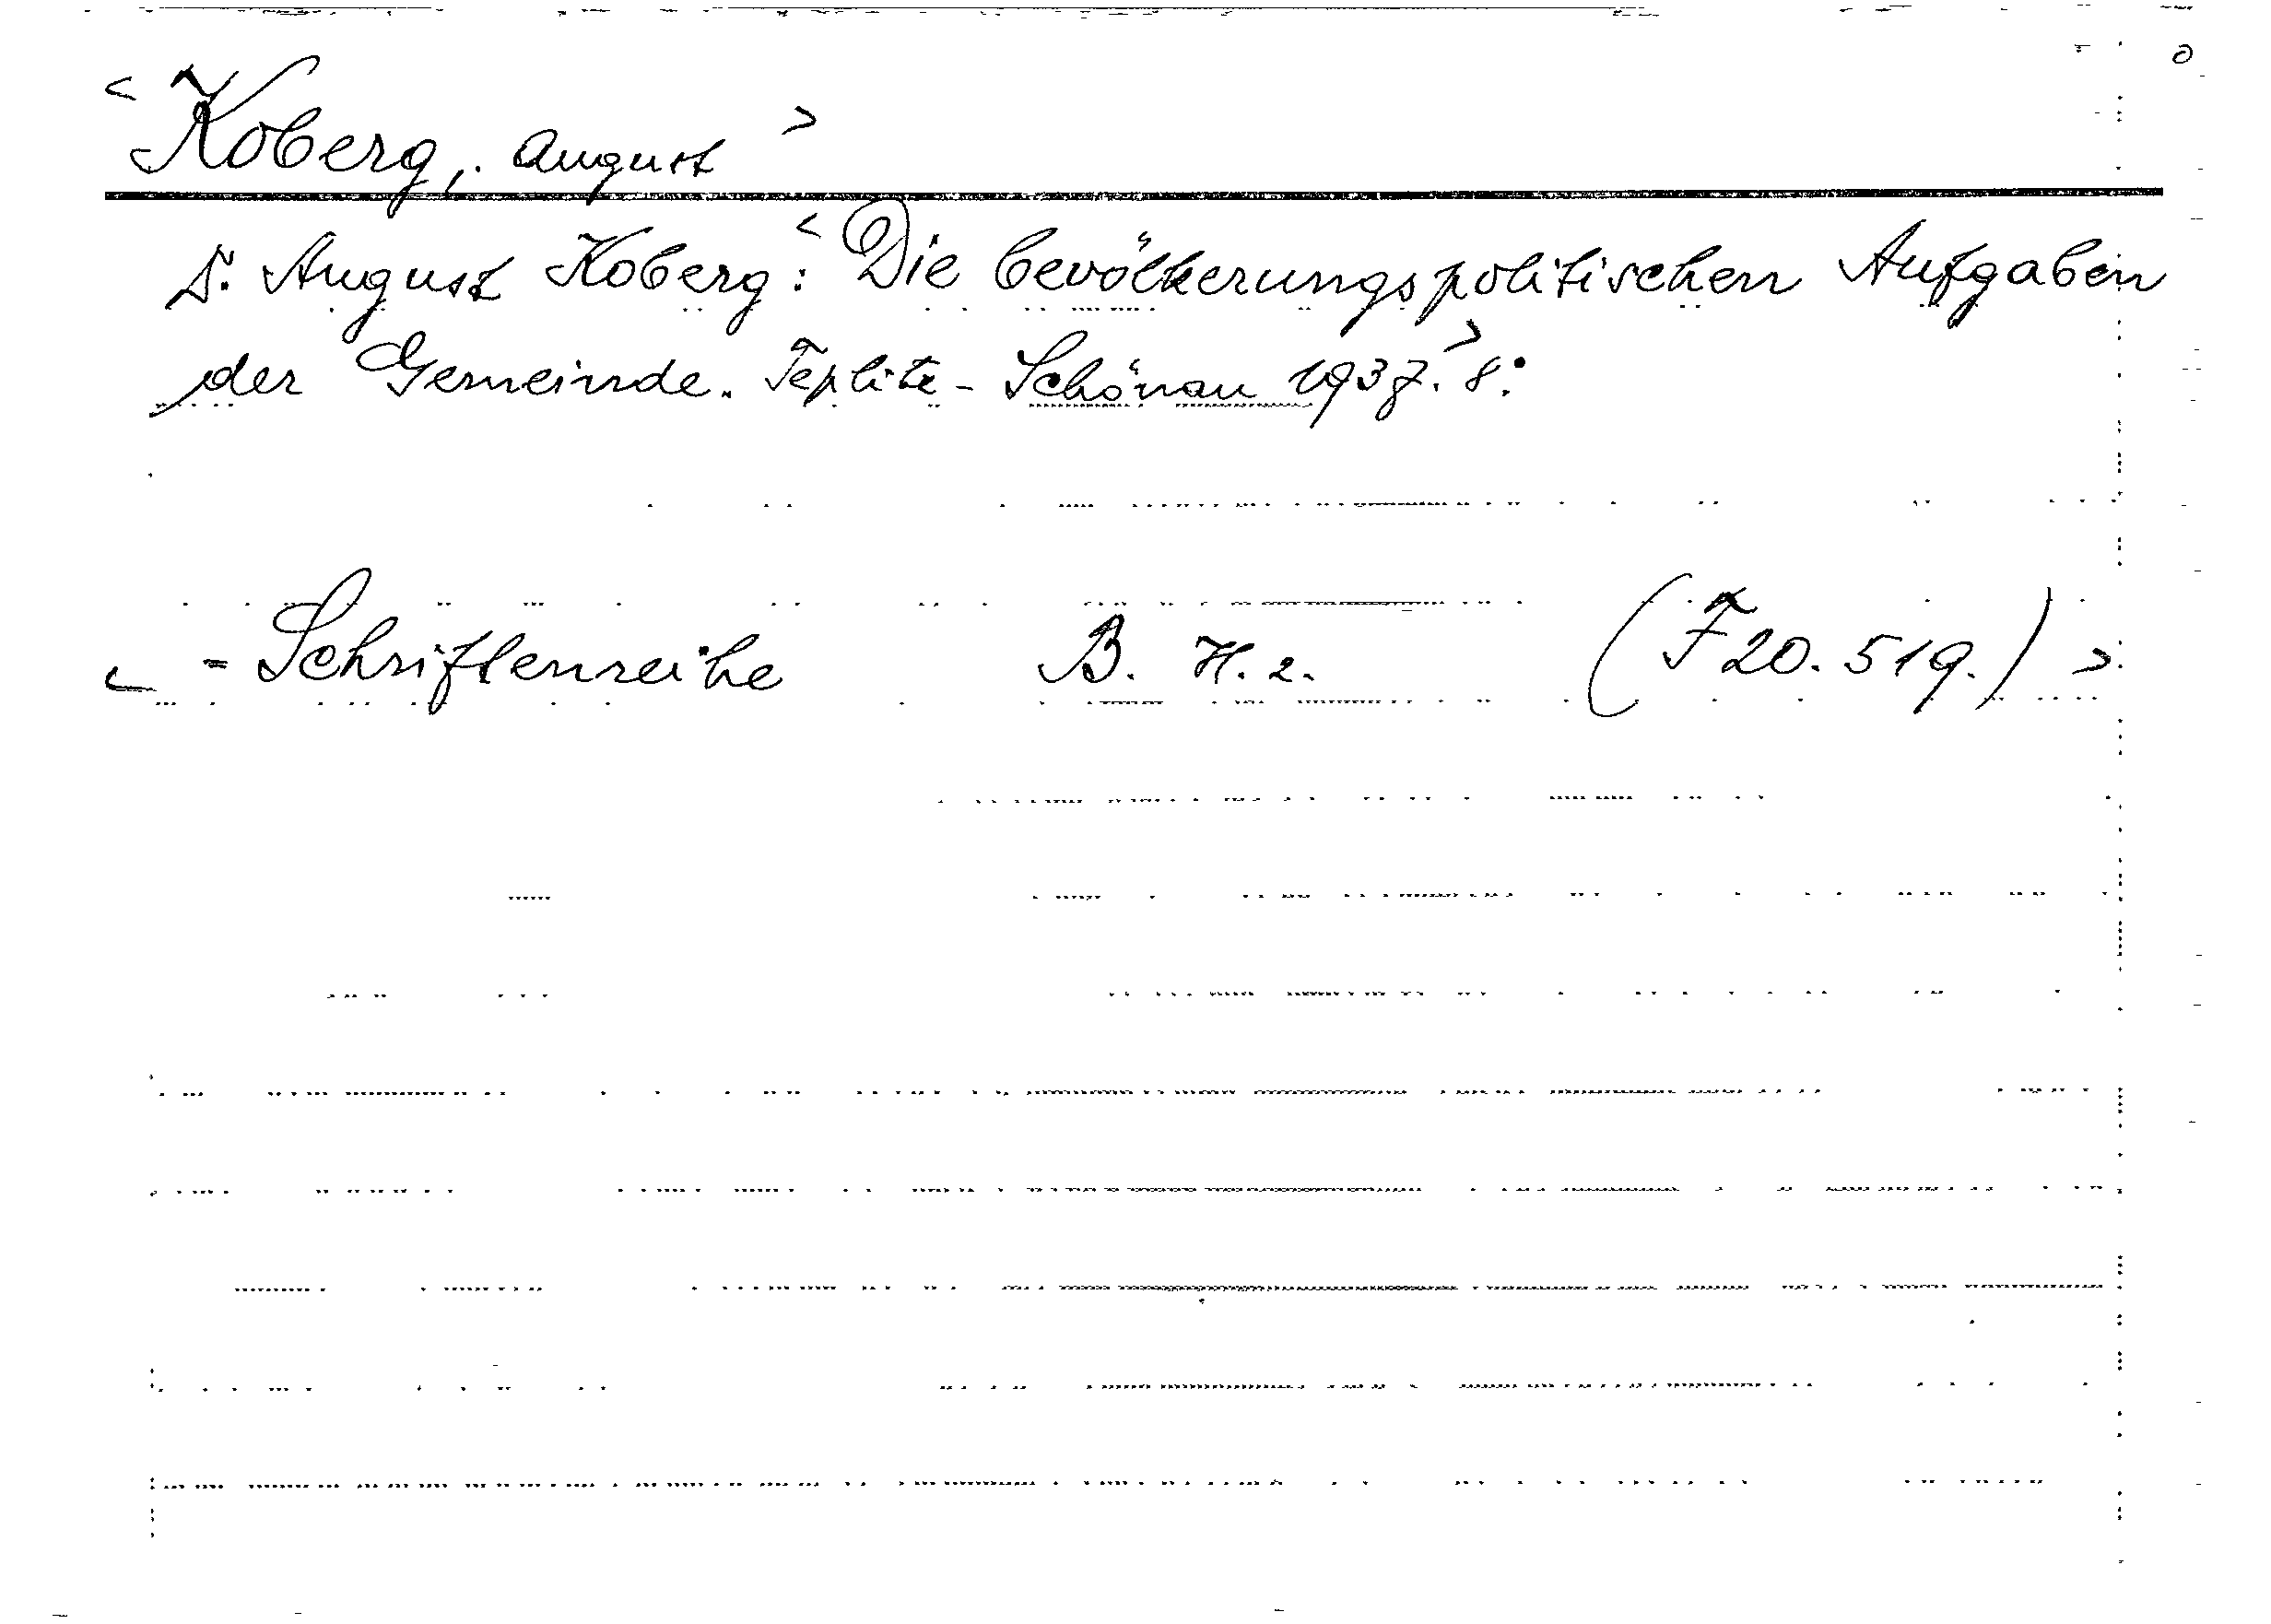 < Koberg, August >
Dr. August Koberg: < Die bevölkerungspolitischen Aufgaben
der Gemeinde. Teplitz-Schönau 1937. > 8°.
< - Schriftenreihe B. H. 2. (F 20.519.) >